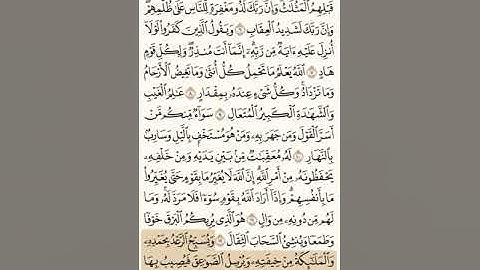 قَبْلِهِمُ الْمَثُلَاتُ وَإِنَّ رَبَّكَ لَذُو مَغْفِرَةٍ لِّلنَّاسِ عَلَىٰ ظُلْمِهِمْ
وَإِنَّ رَبَّكَ لَشَدِيدُ الْعِقَابِ ٦ وَيَقُولُ الَّذِينَ كَفَرُوا لَوْلَا
أُنزِلَ عَلَيْهِ آيَةٌ مِّن رَّبِّهِ إِنَّمَا أَنتَ مُنذِرٌ وَلِكُلِّ قَوْمٍ
هَادٍ ٧ اللَّهُ يَعْلَمُ مَا تَحْمِلُ كُلُّ أُنثَىٰ وَمَا تَغِيضُ الْأَرْحَامُ
وَمَا تَزْدَادُ وَكُلُّ شَيْءٍ عِندَهُ بِمِقْدَارٍ ٨ عَالِمُ الْغَيْبِ
وَالشَّهَادَةِ الْكَبِيرُ الْمُتَعَالِ ٩ سَوَاءٌ مِّنكُم مَّنْ
أَسَرَّ الْقَوْلَ وَمَن جَهَرَ بِهِ وَمَنْ هُوَ مُسْتَخْفٍ بِاللَّيْلِ وَسَارِبٌ
بِالنَّهَارِ ١٠ لَهُ مُعَقِّبَاتٌ مِّن بَيْنِ يَدَيْهِ وَمِنْ خَلْفِهِ
يَحْفَظُونَهُ مِنْ أَمْرِ اللَّهِ إِنَّ اللَّهَ لَا يُغَيِّرُ مَا بِقَوْمٍ حَتَّىٰ يُغَيِّرُوا
مَا بِأَنفُسِهِمْ وَإِذَا أَرَادَ اللَّهُ بِقَوْمٍ سُوءًا فَلَا مَرَدَّ لَهُ وَمَا
لَهُم مِّن دُونِهِ مِن وَالٍ ١١ هُوَ الَّذِي يُرِيكُمُ الْبَرْقَ خَوْفًا
وَطَمَعًا وَيُنشِئُ السَّحَابَ الثِّقَالَ ١٢ وَيُسَبِّحُ الرَّعْدُ بِحَمْدِهِ
وَالْمَلَائِكَةُ مِنْ خِيفَتِهِ وَيُرْسِلُ الصَّوَاعِقَ فَيُصِيبُ بِهَا